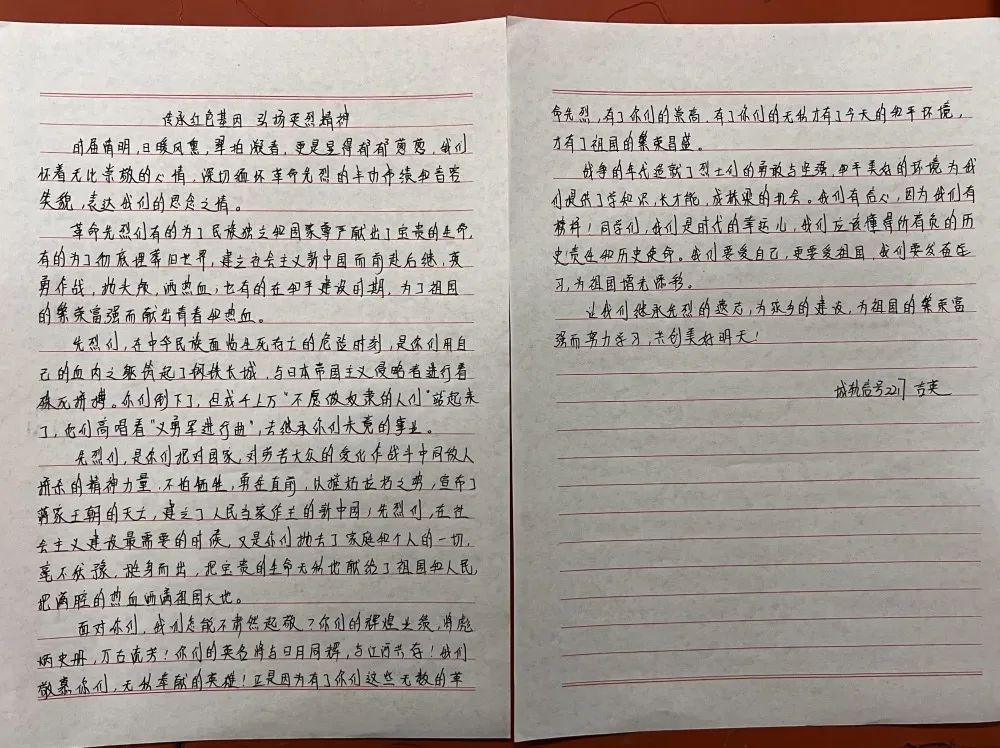 传承红色基因 弘扬英烈精神
时届清明,日暖风熏,翠柏凝香,更是显得郁郁葱葱。我们
怀着无比崇敬的心情,深切缅怀革命先烈的丰功伟绩和音容
笑貌,表达我们的思念之情。
革命先烈们有的为了民族独立和国家尊严献出了宝贵的生命,
有的为了彻底埋葬旧世界,建立社会主义新中国而前赴后继,英
勇作战,抛头颅,洒热血;也有的在和平建设时期,为了祖国
的繁荣富强而献出青春和热血。
先烈们,在中华民族面临生死存亡的危险时刻,是你们用自
己的血肉之躯筑起了钢铁长城,与日本帝国主义侵略者进行着
殊死拼搏。你们倒下了,但成千上万“不愿做奴隶的人们”站起来
了,他们高唱着“义勇军进行曲”,去继承你们未竟的事业。
先烈们,是你们把对国家,对劳苦大众的爱化作战斗中同敌人
拼杀的精神力量,不怕牺牲,勇往直前,以摧枯拉朽之势,宣布了
蒋家王朝的灭亡,建立了人民当家作主的新中国;先烈们,在社
会主义建设最需要的时候,又是你们抛去了家庭和个人的一切,
毫不犹豫,挺身而出,把宝贵的生命无私地献给了祖国和人民,
把满腔的热血洒满祖国大地。
面对你们,我们怎能不肃然起敬?你们的辉煌业绩,将彪
炳史册,万古流芳!你们的英名将与日月同辉,与江河共存!我们
敬慕你们,无私奉献的英雄!正是因为有了你们这些无数的革
命先烈,有了你们的崇高,有了你们的无私才有了今天的和平环境,
才有了祖国的繁荣昌盛。
战争的年代造就了烈士们的勇敢与坚强,和平美好的环境为我
们提供了学知识,长才能,成栋梁的机会。我们有信心,因为我们有
榜样!同学们,我们是时代的幸运儿,我们应该懂得所肩负的历
史责任和历史使命。我们要爱自己,更要爱祖国,我们要发奋学
习,为祖国增光添彩。
让我们继承先烈的遗志,为家乡的建设,为祖国的繁荣富
强而努力学习,共创美好明天!
城轨信号2217 吉英